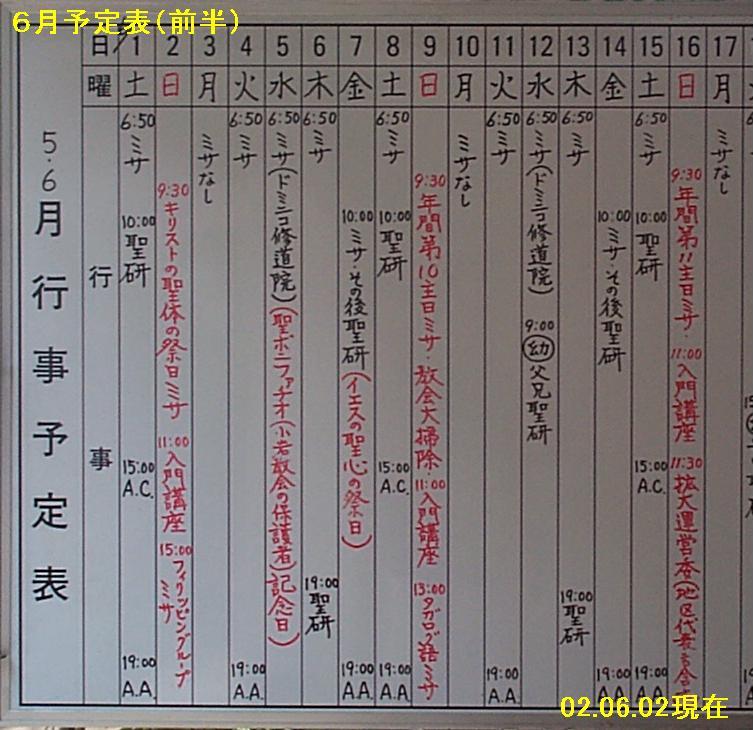 6月予定表(前半)
5.6月行事予定表
日 1 2 3 4 5 6 7 8 9 10 11 12 13 14 15 16 17
曜 土 日 月 火 水 木 金 土 日 月 火 水 木 金 土 日 月
行事
6:50 ミサ
10:00 聖研
15:00 A.C.
19:00 A.A.
9:30 キリストの聖体の祭日ミサ
11:00 入門講座
15:00 フィリッピングループミサ
ミサなし
6:50 ミサ
19:00 A.A.
6:50 ミサ(ドミニコ修道院)(聖ボニファチオ(小岩教会の保護者)記念日)
6:50 ミサ
19:00 聖研
10:00 ミサ・その後聖研(イエスの聖心の祭日)
19:00 A.A.
6:50 ミサ
10:00 聖研
15:00 A.C.
19:00 A.A.
9:30 年間第10主日ミサ・教会大掃除・
11:00 入門講座
13:00 タガログ語ミサ
ミサなし
6:50 ミサ
19:00 A.A.
6:50 ミサ(ドミニコ修道院)
9:00 幼 父兄聖研
6:50 ミサ
19:00 聖研
10:00 ミサ・その後聖研
19:00 A.A.
6:50 ミサ
10:00 聖研
15:00 A.C.
19:00 A.A.
9:30 年間第11主日ミサ・
11:00 入門講座
11:30 拡大運営委(地区代表も含
ミサなし
02.06.02現在